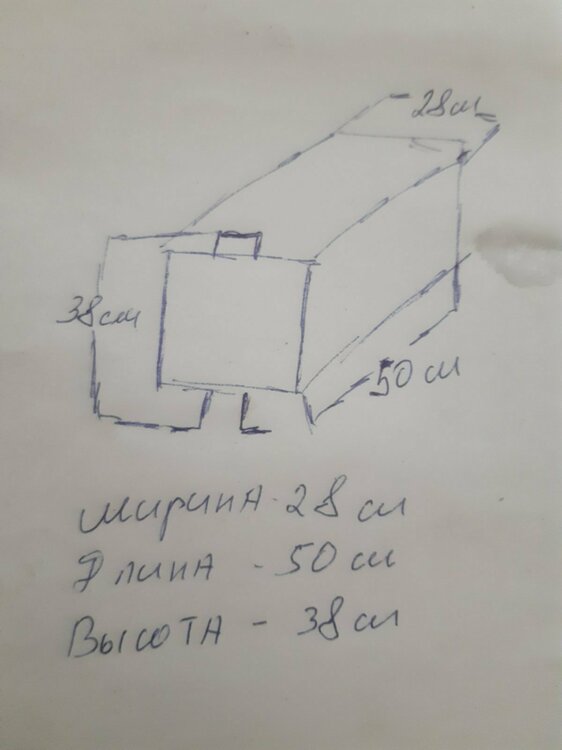 28см
38см
50см
Ширина - 28 см
Длина - 50 см
Высота - 38 см